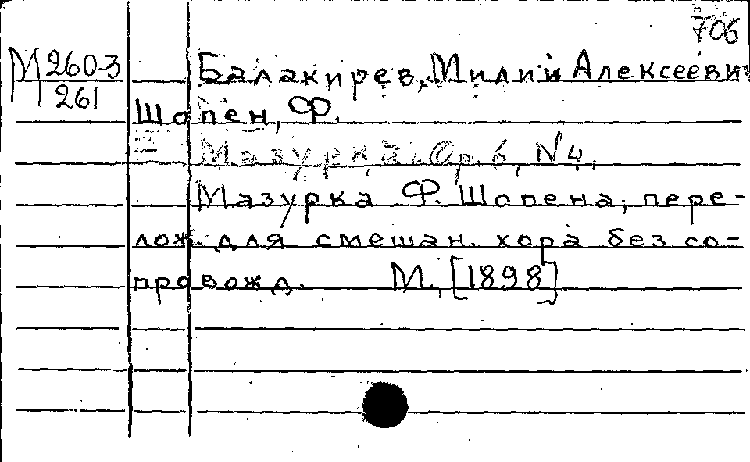 706
М 260-3
261
Балакирев, Милий Алексееви
Шопен, Ф.
Мазурка. Ор. 6, N 4.
Мазурка Ф. Шопена, пере-
лож. для смешан. хора без со-
провожд. М., [1898]